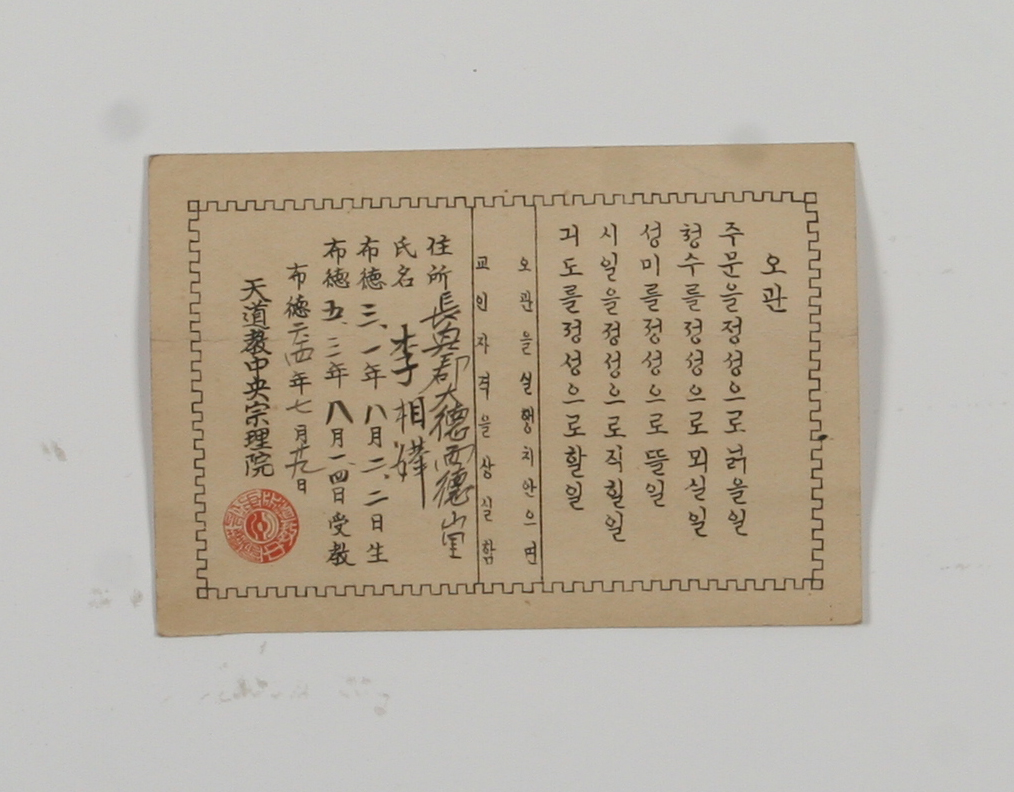 오관
주문을정성으로넑을일
청수를정성으로뫼실일
성미를정성으로뜰일
시일을정성으로직힐일
긔도를정성으로할일
오관을실행치안으면
교인자격을상실함
住所 長興郡大德面德山里
氏名 李相
布德三一年八月二二日生
布德五三年八月一四日受教
布德 年七月 日
天道教中央宗理院